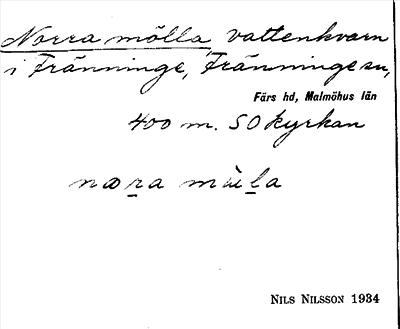 Norra mölla, vattenkvarn
i Fränninge, Fränninge sn,
Färs hd, Malmöhus län
400 m. SO kyrkan
NILS NILSSON 1934